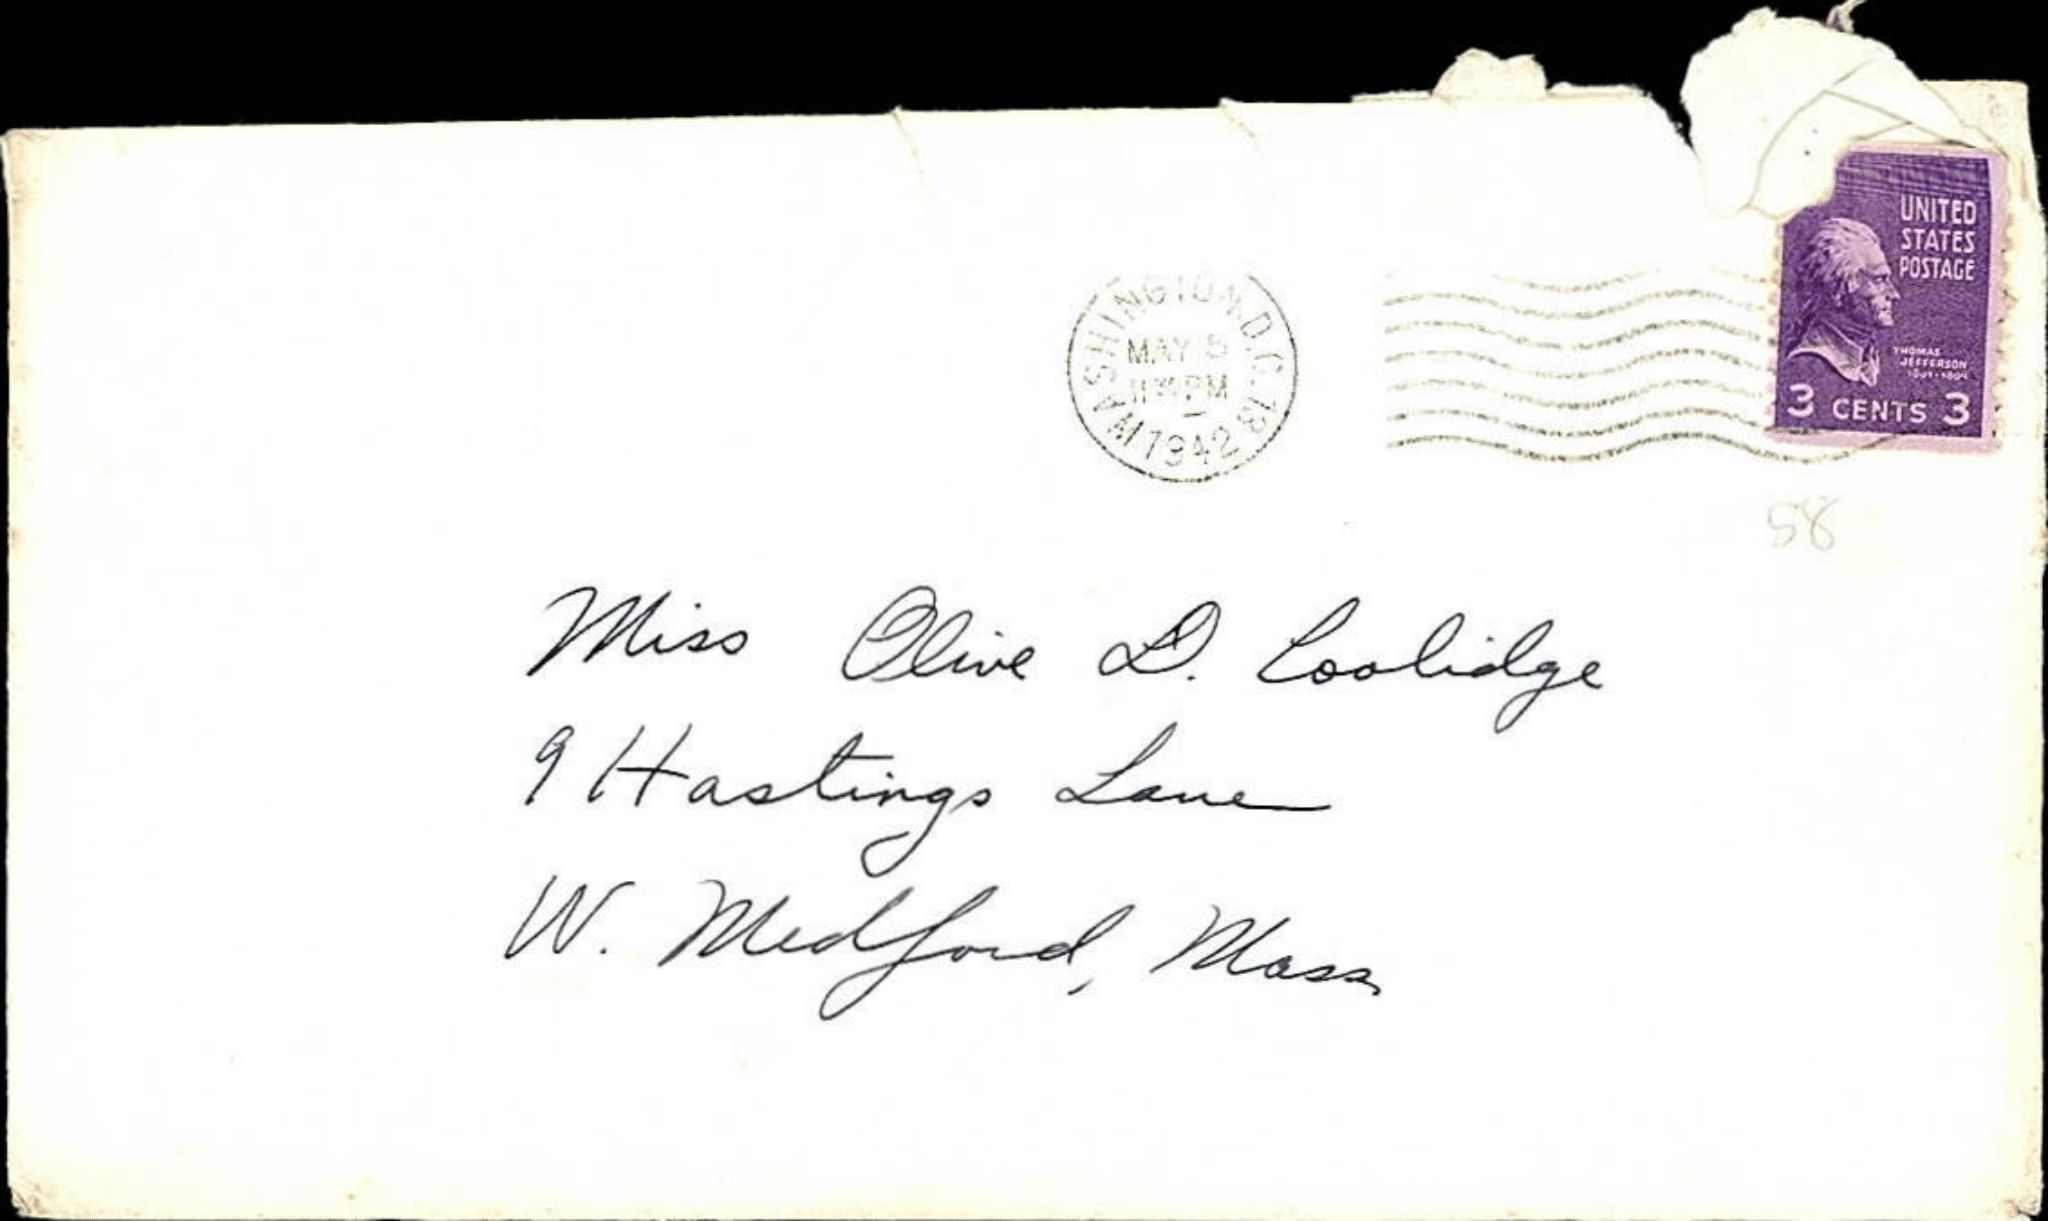 UNITED
STATES
POSTAGE
THOMAS
JEFFERSON
3 CENTS 3
WASHINGTON, D.C. 13
MAY 5
PM
1942
58
Miss Olive D. Coolidge
9 Hastings Lane
W. Medford, Mass.